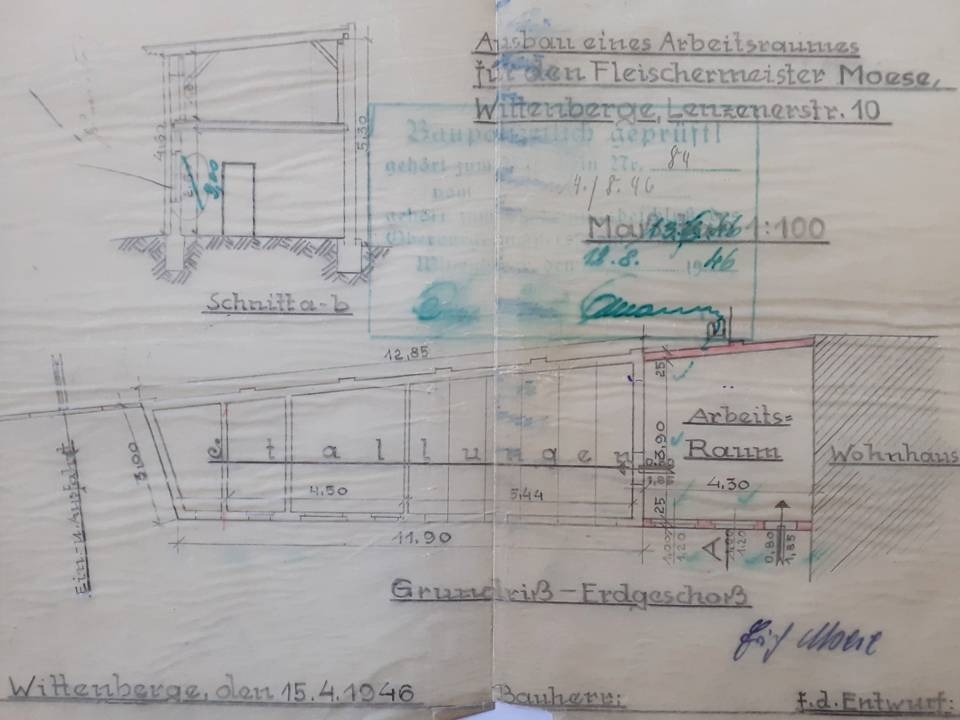 Ausbau eines Arbeitsraumes
für den Fleischermeister Moese,
Wittenberge, Lenzenerstr. 10
Baupolizeilich geprüft!
gehört zum in Nr. 84
vom 4./8.46
gehört zum
Maßstab 1:100
18.8. 1946
4,30
5,30
3,00
Schnitt a-b
12,85
Ein- u. Ausfahrt
3,00
Stallungen
4,50
5,44
11,90
25
3,90
0,80
1,85
25
Arbeits=
Raum
4,30
Wohnhaus
A
1,00
1,20
1,00
1,20
0,80
1,85
Grundriß-Erdgeschoß
Wittenberge, den 15.4.1946
Bauherr:
f.d. Entwurf: